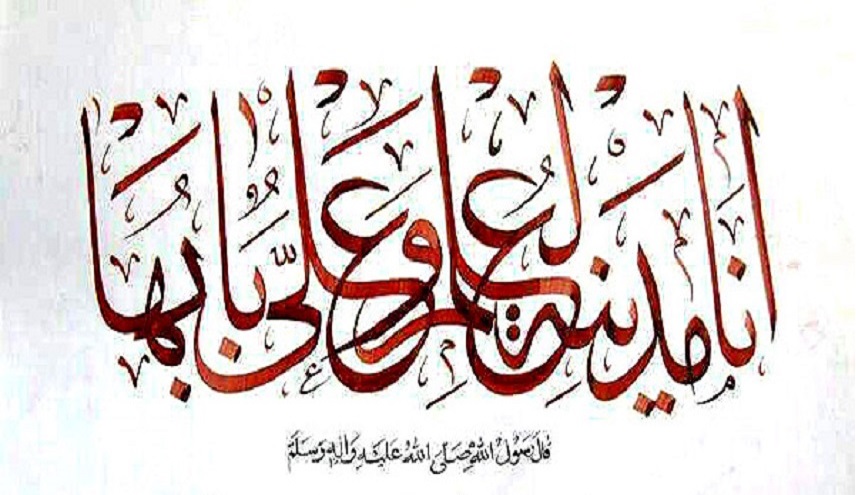 انا مدينة العلم وعليّ بابُها
قال رسول الله صلى الله عليه واله وسلم